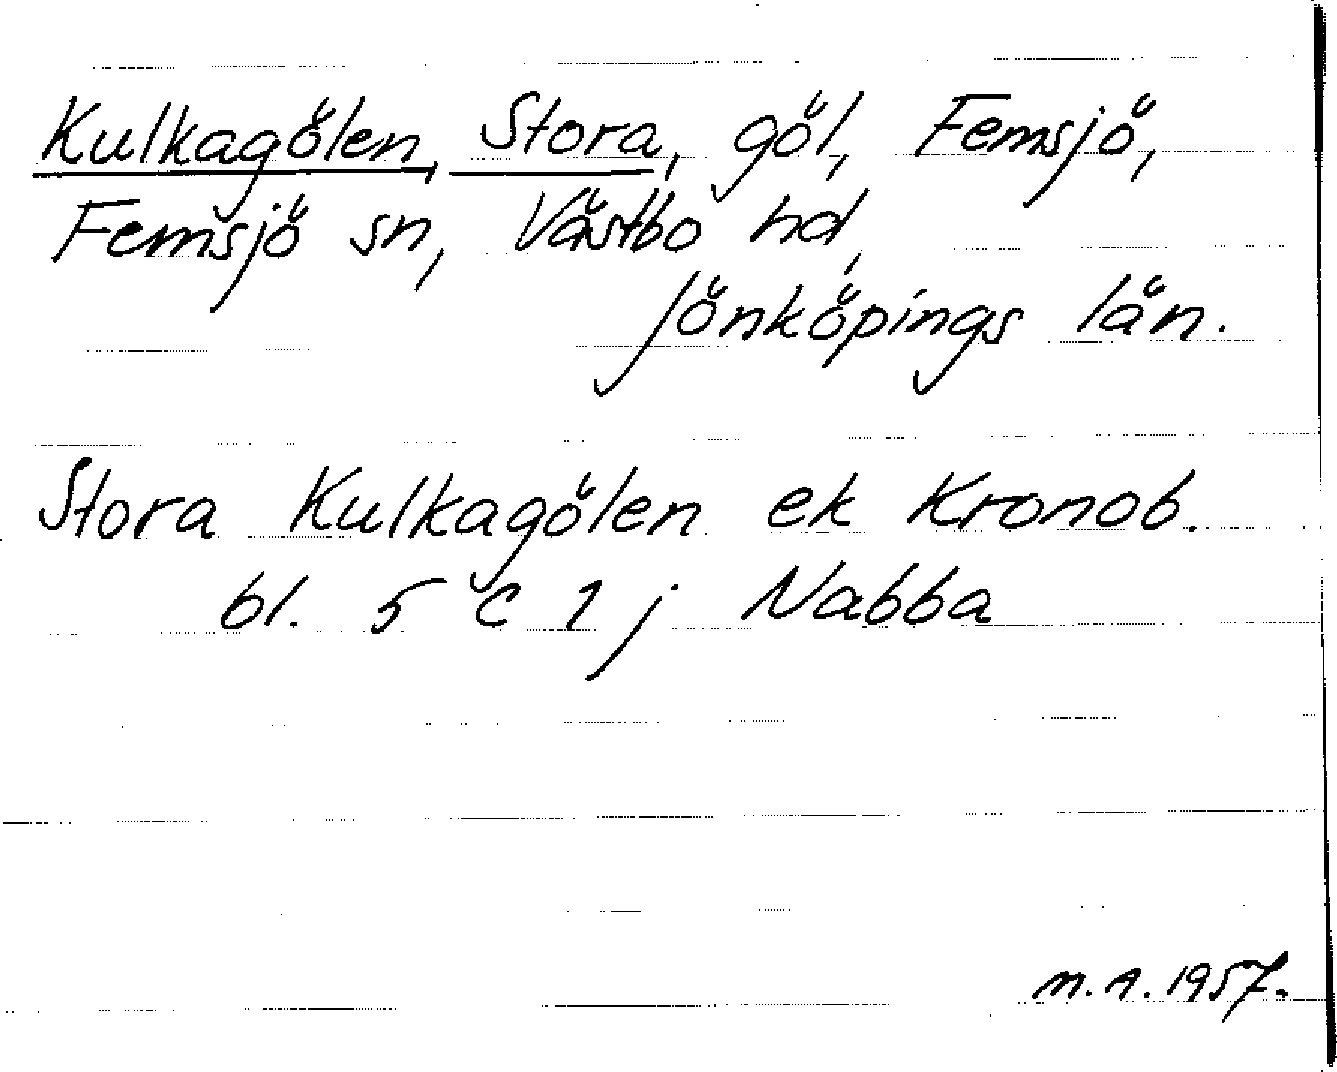 Kulkagölen, Stora, göl, Femsjö,
Femsjö sn, Västbo hd,
Jönköpings län.
Stora Kulkagölen ek Kronob.
bl. 5 C 1 j Nabba
M.A. 1957.